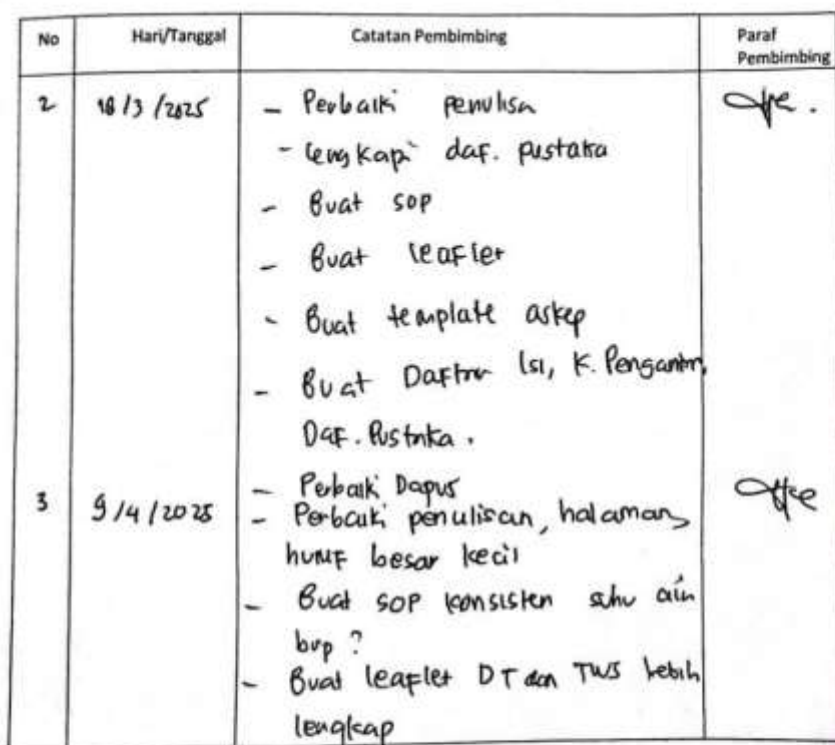 No Hari/Tanggal Catatan Pembimbing Paraf
Pembimbing
2 18/3/2025 - Perbaiki penulisa
- lengkapi daf. pustaka
- Buat SOP
- Buat leaflet
- Buat template askep
- Buat Daftar Isi, K. Pengantar,
Daf. Pustaka.
- Perbaiki Dapus
3 9/4/2025 - Perbaiki penulisan, halaman,
huruf besar kecil
- Buat SOP konsisten suhu air
brp ?
- Buat leaflet DT dan TWS lebih
lengkap